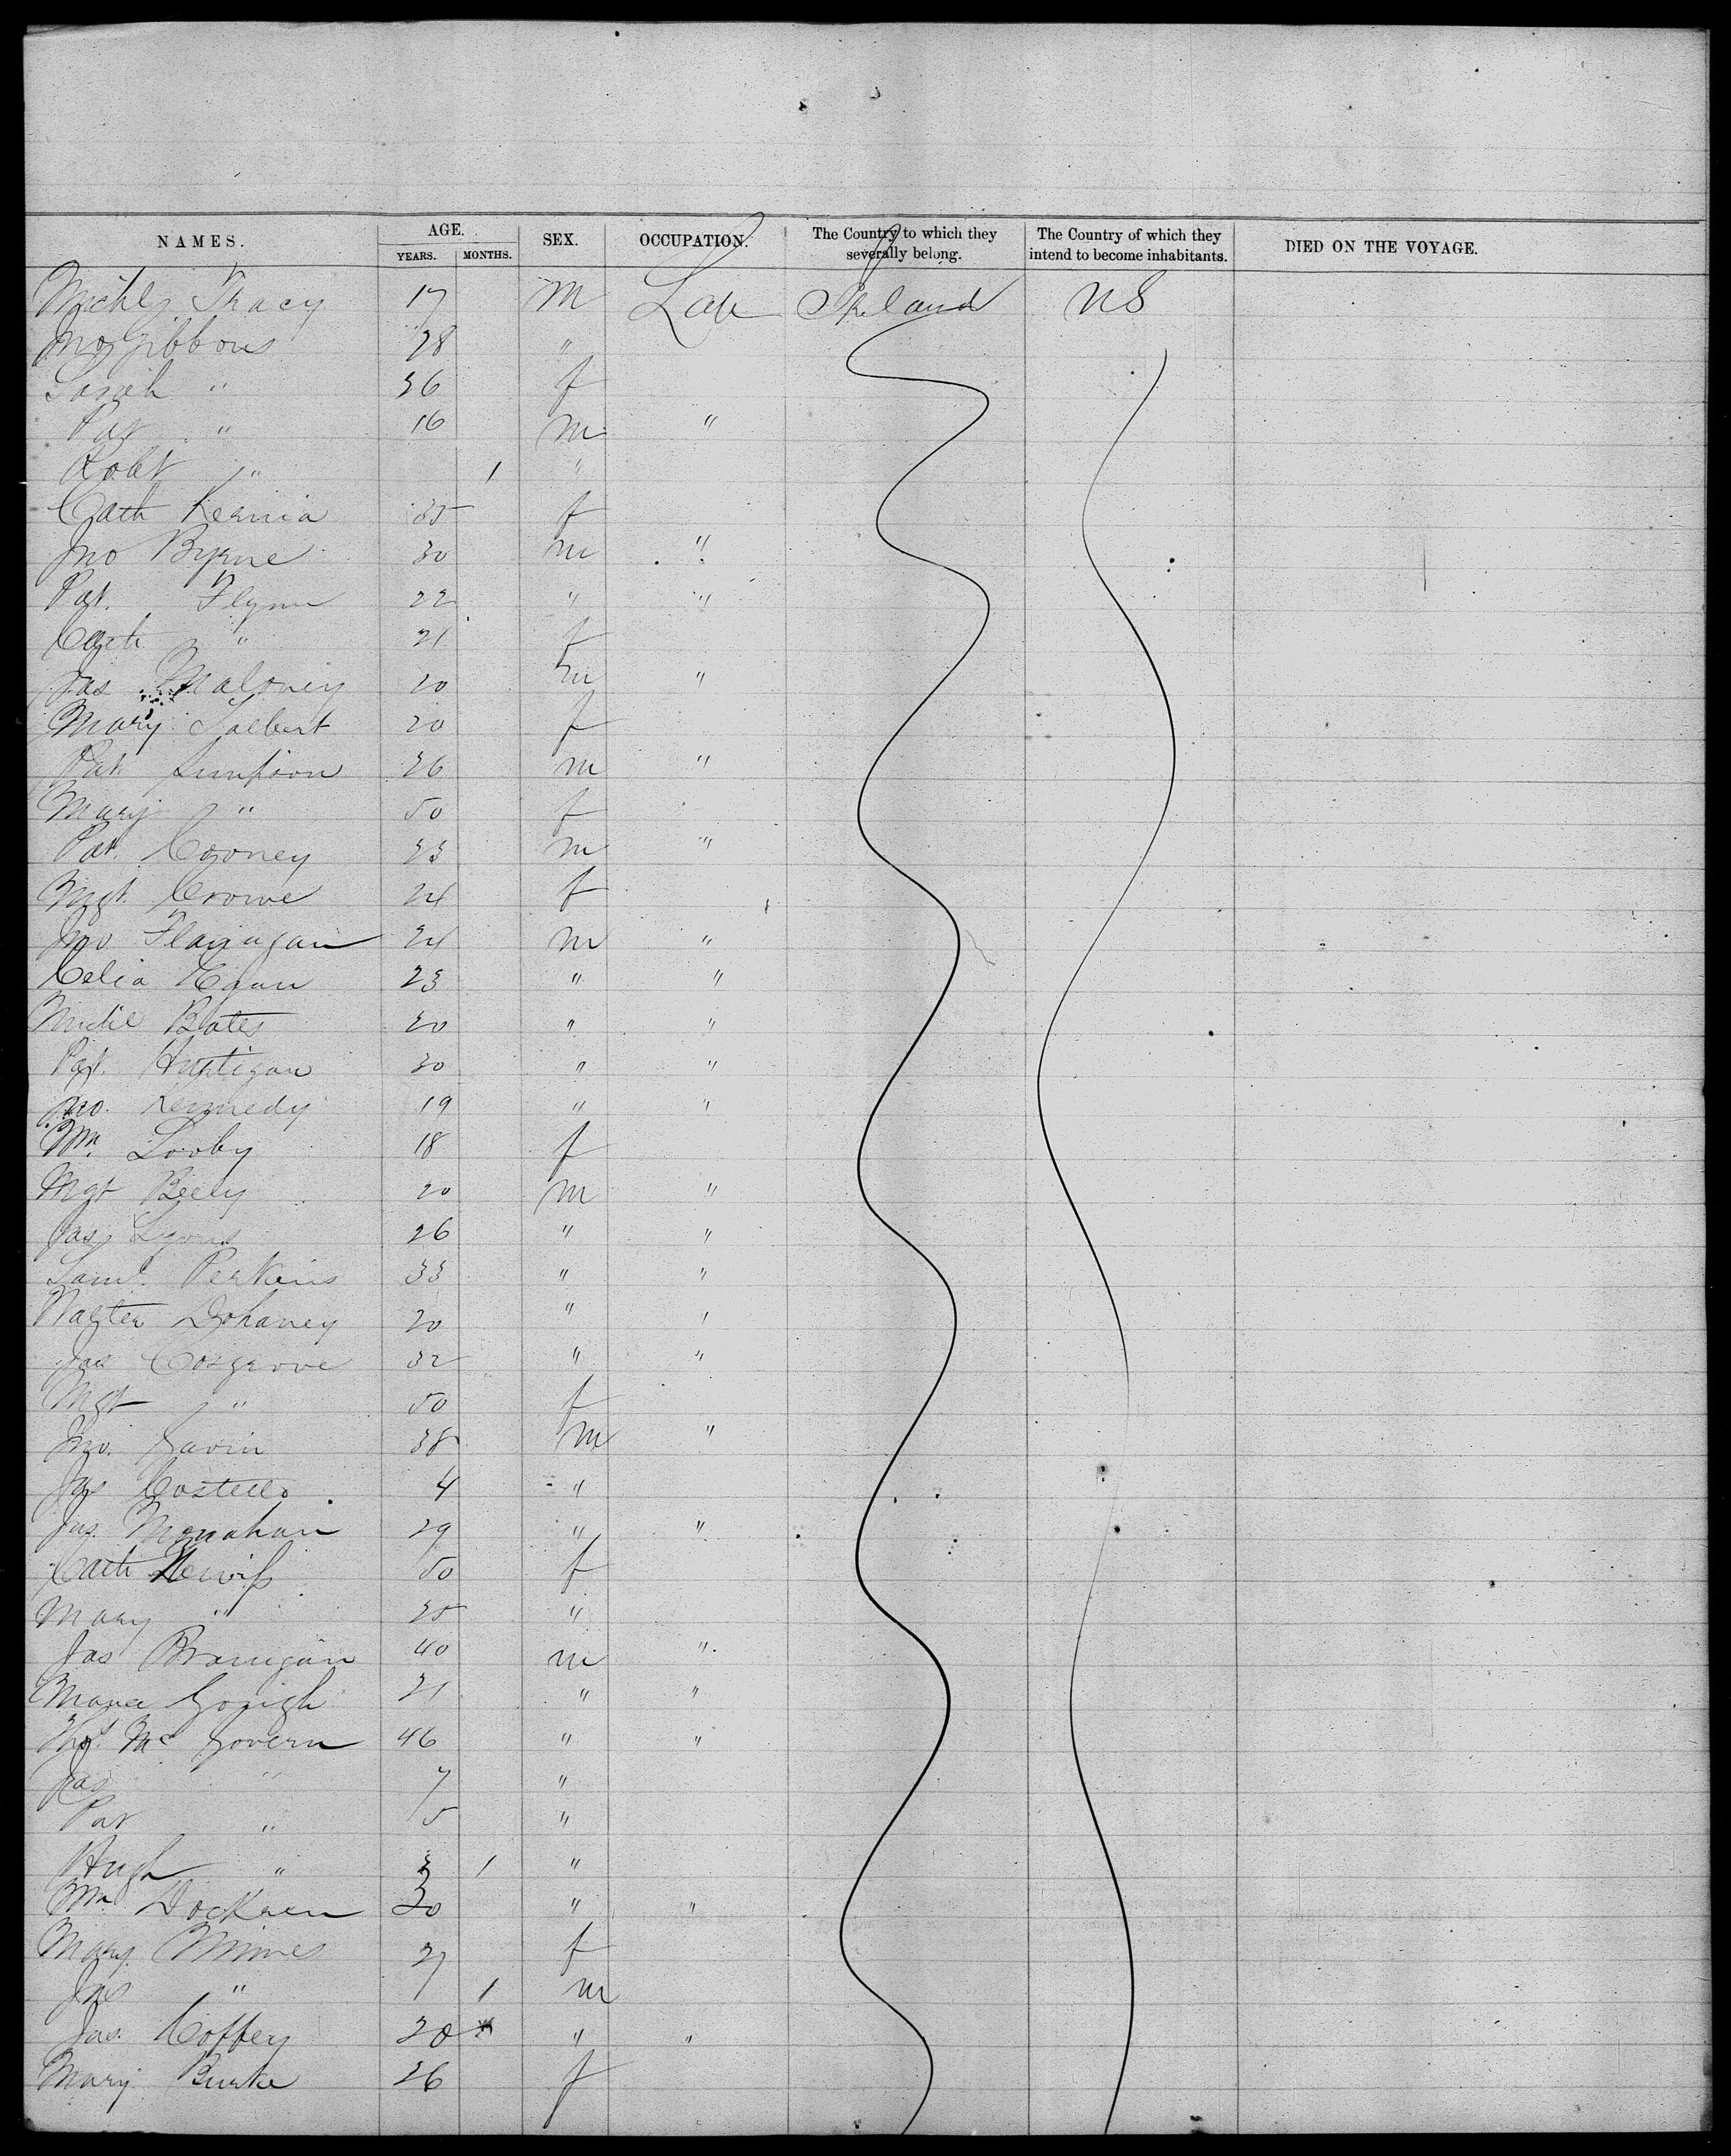 NAMES. AGE. YEARS. MONTHS. SEX. OCCUPATION. The Country to which they severally belong. The Country of which they intend to become inhabitants. DIED ON THE VOYAGE.
Michl. Tracy 17 m Lab Ireland US
Jno Gibbons 28 "
Sarah " 36 f
Pat " 16 m "
Robt " 1 "
Cath Kernia 35 f
Jno Byrne 30 m "
Pat. Flynn 22 " "
Cath " 21 f
Jas Maloney 20 m "
Mary Talbert 20 f
Pat. Simpson 36 m "
Mary " 50 f
Pat. Cooney 23 m "
Mgt. Crowe 24 f
Jno Flanagan 24 m "
Celia Egan 23 " "
Michl Bates 20 " "
Pat. Huntigan 30 " "
Jno. Kennedy 19 " "
Wm. Looby 18 f
Mgt 20 m "
Jas Lyons 26 " "
Saml. Perkins 33 " "
Walter Dohaney 20 " "
Jas Cosgrove 32 " "
Mgt " 50 f
Jno. Gavin 38 m "
Jas Costello 4 "
Jas. Monahan 29 " "
Cath 50 f
Mary " 25 "
Jas Branigan 40 m "
21 " "
Thos. Mc Govern 46 " "
Jas " 7 "
Pat " 5 "
Hugh " 3 1 "
Wm Dockren 30 " "
Mary 27 f
Jno " 1 m
Jas. Coffey 20 " "
Mary Burke 26 f